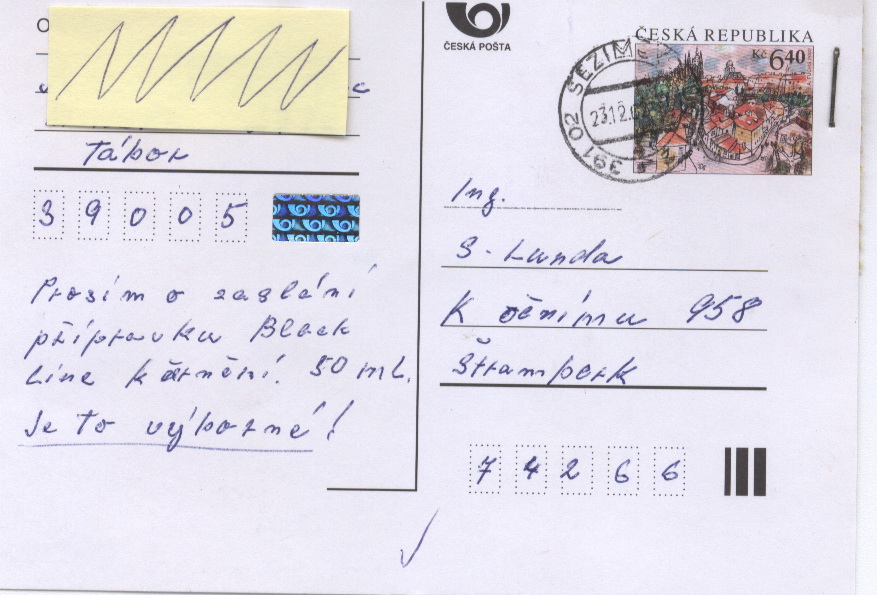 Tábor
39005
Prosím o zaslání
přípravku Black
Line k černění. 50 ml.
Je to výborné!
ČESKÁ POŠTA
ČESKÁ REPUBLIKA
Kč 6,40
391 02 SEZIM
23.12.0
Ing.
S. Lunda
K očnímu 958
Štramberk
74266